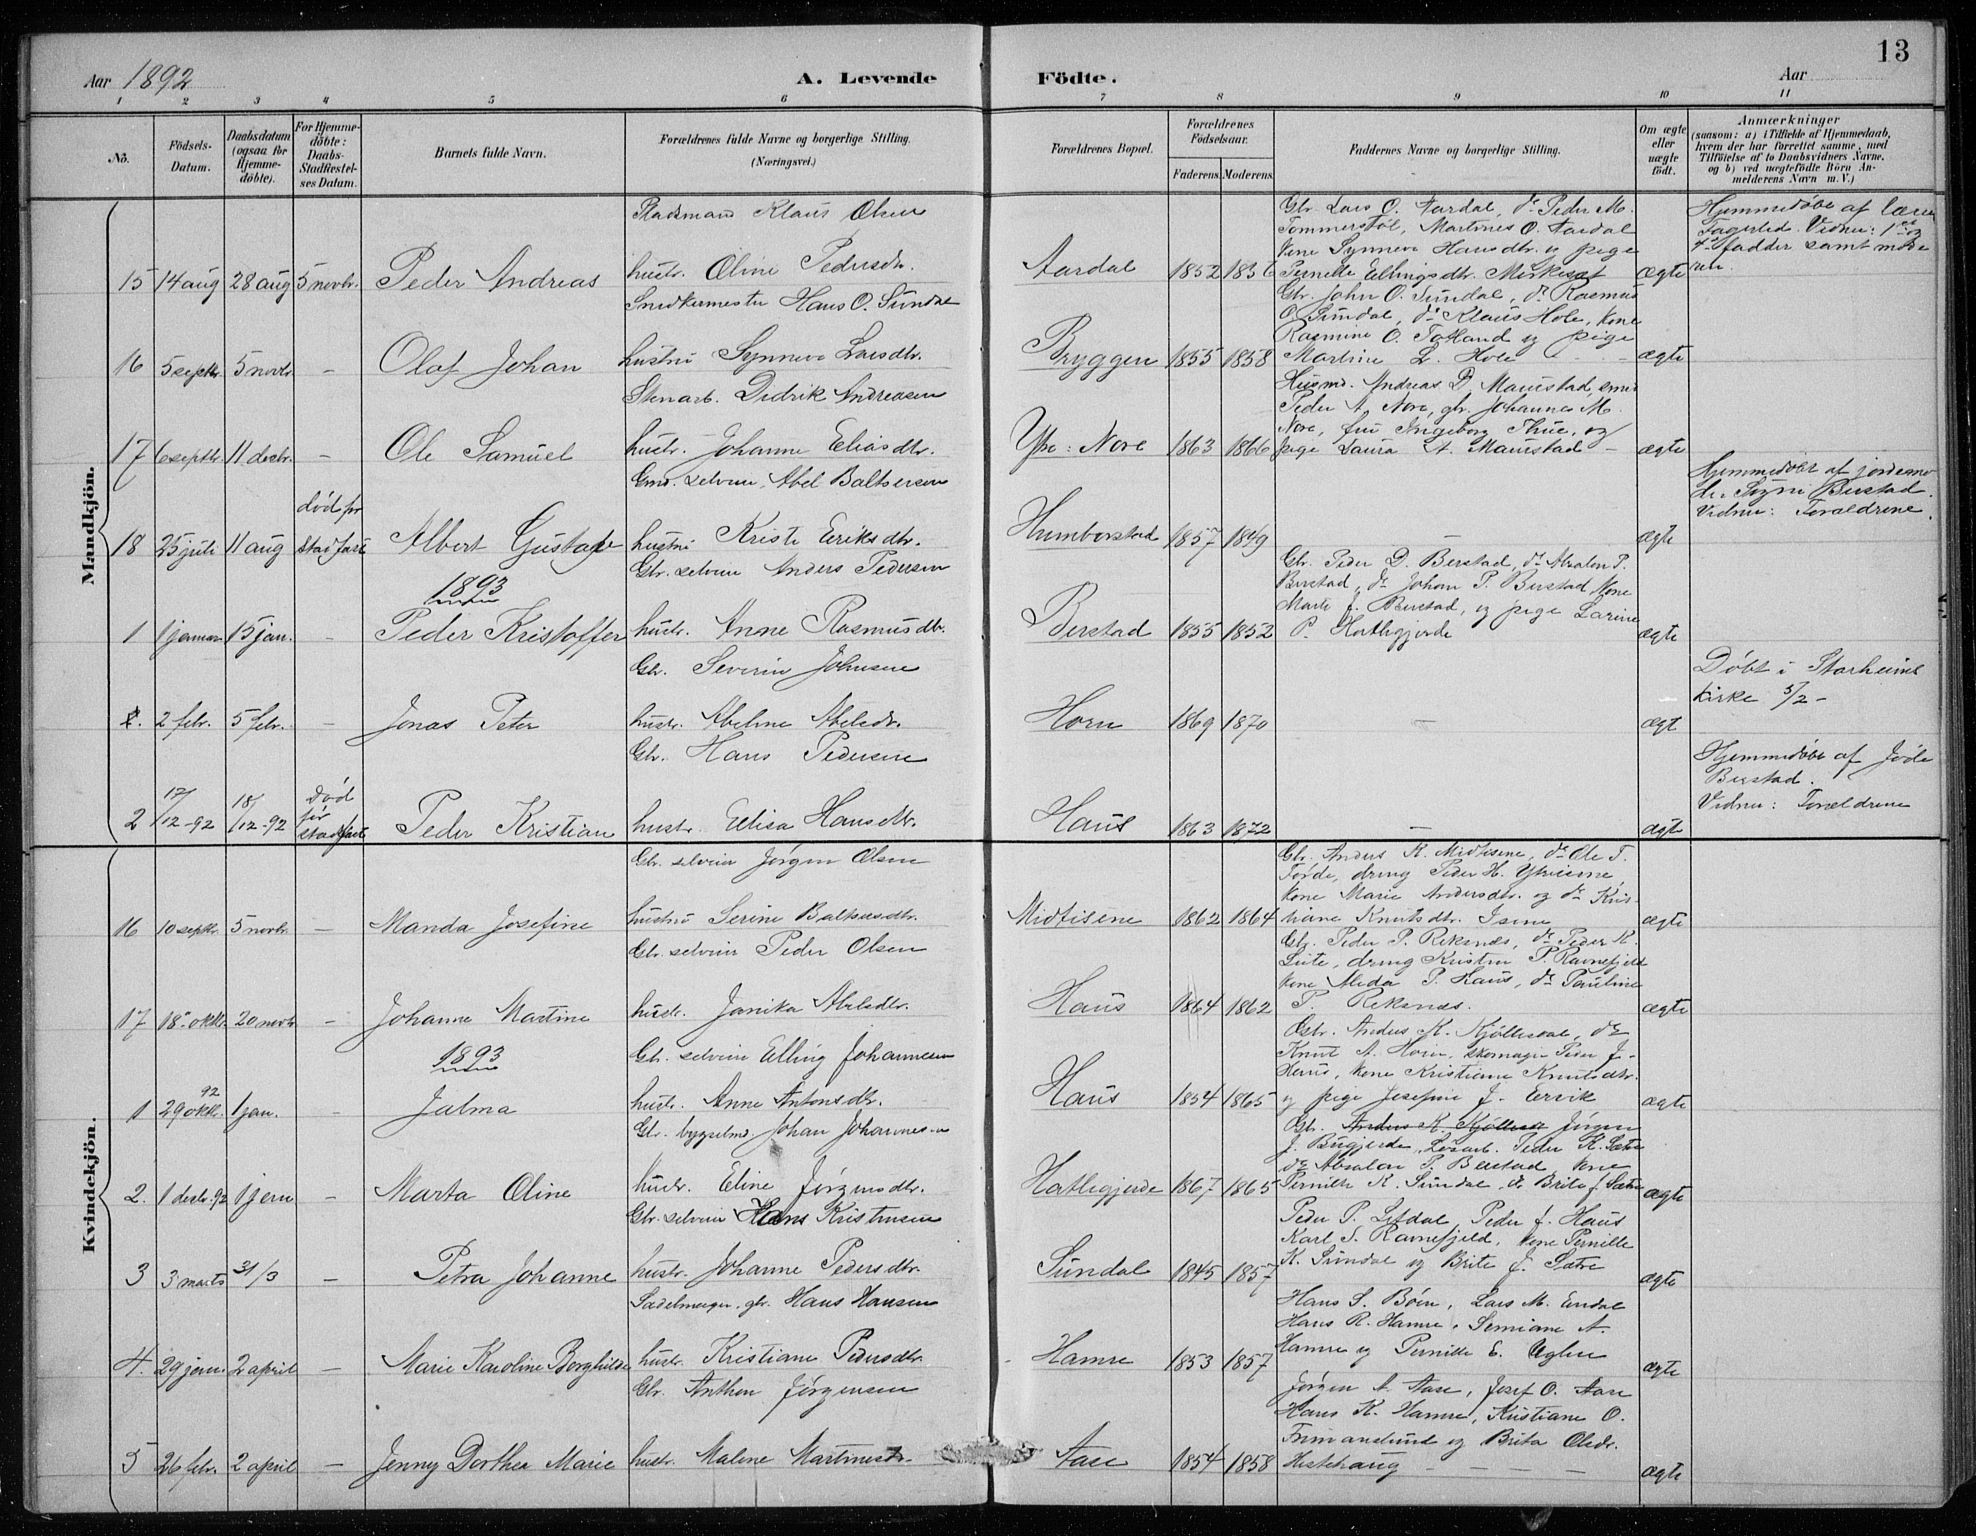 13
Aar 1892
A. Levende
Födte.
Aar
1 2 3 4 5 6 7 8 9 10 11
No.
Födsels-
Datum.
Daabsdatum
(ogsaa for
Hjemme-
döbte).
For Hjemme-
döbte:
Daabs-
Stadfæstel-
ses Datum.
Barnets fulde Navn.
Forældrenes fulde Navne og borgerlige Stilling.
(Næringsvei.)
Forældrenes Bopæl.
Forældrenes
Födselsaar.
Faderens. Moderens.
Faddernes Navne og borgerlige Stilling.
Om ægte
eller
uægte
födt.
Anmærkninger
(saasom: a) i Tilfælde af Hjemmedaab,
hvem der har forrettet samme, med
Tilföielse af to Daabsvidners Navne,
og b) ved uægtefödte Börn An-
melderens Navn m. V.)
Mandkjön.
Pladsmand Klaus Olsen
Gbr. Lars O. Aardal, do Peder M.
Tommerstøl, Martines O. Aardal
kone Synneve Hansdtr. og pige
Hjemmedøbt af lærer
Fagerlid. Vidner: 1ste og
4de fadder samt mode
ren.
15 14 aug 28 aug 5 novbr. Peder Andreas hustr. Oline Pedersdr. Aardal 1852 1856 Pernille Ellingsdtr. ægte
Snedkermester Hans O. Sundal
Gbr. John O. Sundal, do Rasmus
O. Sundal, do Klaus Hole, kone
Rasmine O. Totland og pige
16 5 septbr. 5 novbr – Olaf Johan hustru Synneve Larsdtr. Bryggen 1855 1858 Martine L. Hole – – ægte
Stenarb. Didrik Andreasen
Husmd. Andreas D. Maurstad, smed
Peder A. Nore, gbr. Johannes M.
Nore, fru Ingeborg Thue, og
17 6 septbr. 11 decbr. – Ole Samuel hustr. Johanne Eliasdtr. Ytre: Nore 1863 1866 pige Laura A. Maurstad – ægte
Gmd. selveier Abel Baltsersen
Hjemmedøbt af jordemo
der Berstad.
Vidner: Forældrene.
død før
18 25 juli 11 aug stadfæst Albert Gustav hustru Kriste Eriksdtr. Humborstad 1857 1849 – ægte
Gbr. selveier Anders Pedersen
1893
Gbr. Peder D. Berstad, do Absalon P.
Berstad, do Johan P. Berstad, kone
Marte J. Berstad, og pige Larine
1 1 januar 15 jan. – Peder Kristoffer hustr. Anne Rasmusdtr. Berstad 1855 1852 P. Hatlegjerde ægte
Gbr. Severin Johnsen
Døbt i Starheims
kirke 5/2 –
2. 2 febr. 5 febr. – Jonas Peter hustr. Abeline Abelsdr. Horn 1869 1870 – ægt
Gbr. Hans Pedersen
Hjemmedøbt af
Berstad.
Vidner: Forældrene
Død
før
2 17/12-92 18/12-92 stadfæst Peder Kristian hustr. Elisa Hansdtr. Haus 1863 1872 – ægte
Kvindekjön.
Gbr. selveier Jørgen Olsen
Gbr. Anders K. Midtisene, do Ole T.
Førde, dreng Peder H. Ytreisene,
kone Marie Andersdtr. og do Kris-
16 10 septbr. 5 novbr. – Manda Josefine hustru Serine Baltsersdtr. Midtisene 1862 1864 tiane Knutsdtr. Isene ægte
Gbr. selveier Peder Olsen
Gbr. Peder P. Reksnæs, do Peder R.
Leite, dreng Kristen P. Ravnefjeld
kone Alida P. Haus, do Pauline
17 18. oktbr. 20 novbr – Johanne Martine hustr. Janika Abelsdtr. Haus 1864 1862 P. Reksnæs. ægte
1893
Gbr. selveier Elling Johannesen
Gbr. Anders K. Kjøllesdal, do
Knut A. Horn, skomager Peder J.
Haus, kone Kristiane Knutsdtr.
92
1 29 oktbr. 1 jan. – Jalma hustr. Anne Antonsdtr. Haus 1854 1865 og pige Josefine J. Ervik ægte
Gbr. bygselmd. Johan Johannesen
Gbr. Anders K. Kjøllesd Jørgen
J. Bugjerde, Løsarb. Peder K. Sætre
do Absalon P. Berstad, kone
2. 1 decbr. 92 1 jan – Marta Oline hustr. Eline Jørgensdtr. Hatlegjerde 1867 1865 Pernille K. Sundal, do Brite J. Sætre ægte
Gbr. selveier Hans Kristensen
Peder P. Letdal, Peder J. Haus
Karl S. Ravnefjeld, kone Pernille
3 3 marts 31/3 – Petra Johanne hustr. Johanne Pedersdtr. Sundal 1845 1857 K. Sundal og Brite J. Sætre ægte
Sadelmager, gbr. Hans Hansen
Hans S. Bøen, Lars M. Endal
Hans R. Hamre, Semiane A.
4. 29 janr. 2 april – Marie Karoline Borghilde hustr. Kristiane Pedersdtr. Hamre 1853 1857 Hamre og Pernille E. ægte
Gbr. Anthon Jørgensen
Jørgen A. Aase, Josef O. Aase
Hans K. Hamre, Kristiane O.
og Brita Olsdr.
5 26 febr. 2 april – Jenny Dorthea Marie hustr. Malene Martinesdr. Aase 1854 1858 Hestehaug – – – – ægte